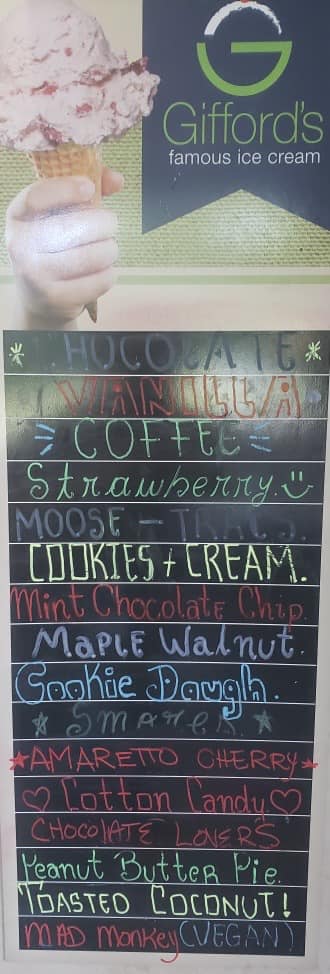 Gifford's
famous ice cream
CHOCOLATE
VANILLA
COFFEE
Strawberry.
MOOSE - TRACS.
COOKIES + CREAM.
Mint Chocolate Chip.
MAPLE Walnut.
Cookie Dough.
AMARETTO CHERRY
Cotton Candy
CHOCOLATE LOVERS
Peanut Butter Pie.
TOASTED COCONUT!
MAD Monkey (VEGAN)